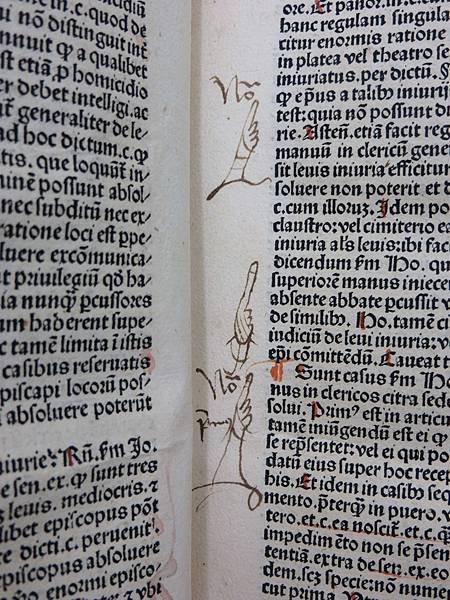 in.c. quod de
ui nō distinguit int
nnuit ꝙ a qualibet
st etiā ꝓ homicidio
er debet intelligi. ac
generaliter dele⸗
ad hoc dictum.c.ꝙ
tis. que loquūt̄ in
minē possunt absol⸗
nec subditū nec ex⸗
ratione loci est ꝓpe⸗
luere excōmunica⸗
ut priuilegiū qd̄ ha⸗
ia nunqȝ ꝑcussores
um haberent supe⸗
c tamē limita i istis
casibus reseruatis
piscapi locorū pos⸗
absoluere poterūt
niurie. Rn̄. fm Jo.
e sen. ex. ꝙ sunt tres
leuis. mediocris. ⁊
libet episcopus pōt
e dicti.c. peruenit.
piscopus absoluere
enormi episco⸗
⁊ vbi
No
No
ore. Et panor. in.c.
hanc regulam singula
citur enormis ratione
in platea vel theatro se
iniuriatus. per dictū.
ꝙ ep̄us a talibȝ iniurij
test: quia nō possunt di
rie. Esten̄. etiā facit reg
manuū in clericū gene
sit leuis iniuria efficitur
soluere non poterit et d
c. cum illoruȝ. Idem po
claustro: vel cimiterio ea
iniuria al's leuis: ibi faci
dicendum fm Ho. qu
superiorē manus iniecer
absente abbate ꝑcussit v
de similibȝ. Ho. tamē ci
iudiciū de leui iniuria: v
ep̄i cōmittēdū. Caueat t
Sunt casus fm Ho
nus in clericos citra sede
solui. Primȝ est in articu
tamē iniūgendū est ei ꝙ
se rep̄sentet: vel ei qui po
datū eius super hoc recep
his. Et idem in casibȝ seq
mento. ꝓterqȝ in puero. v
tero. et.c. ea noscit̄. et.c.
impedimēto non se p̄sen
tentiā. extra de sen̄. ex. eo
dem. scȝ specie: nō numer
cut prima.